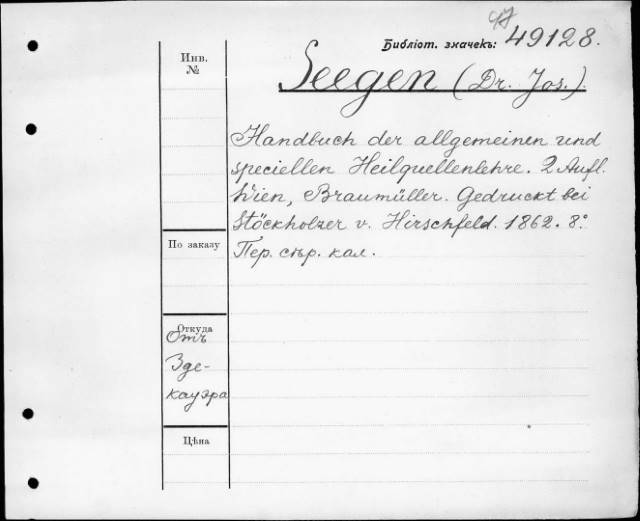 47
Библіот. значекъ: 49128.
Инв.
№
Seegen (Dr. Jos.)
Handbuch der allgemeinen und
speciellen Heilquellenlehre. 2 Aufl.
Wien, Braumüller. Gedruckt bei
Stöckholzer v. Hirschfeld. 1862. 8°
По заказу
Пер. сѣр. кал.
Откуда
Отъ
Зде-
кауэра
Цѣна